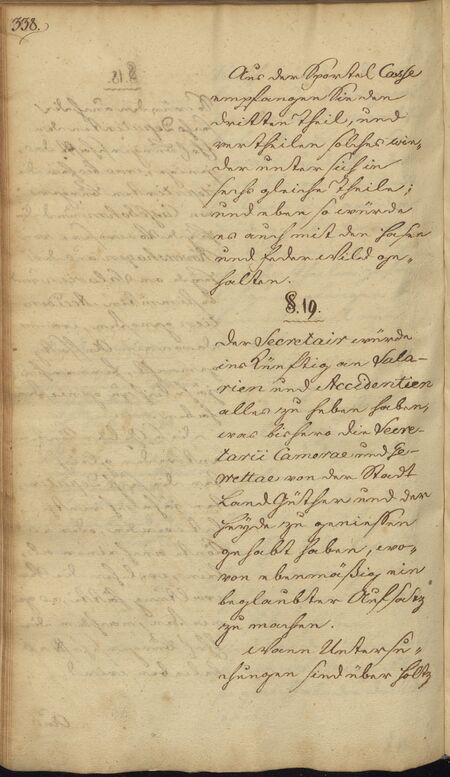 338.
Aus der Sportel Casse
empfangen Sie den
dritten Theil, und
vertheilen solches wie„
der unter sich in
sechs gleiche Theile;
und eben so würde
es auch mit den Hasen
und Feder Wild ge„
halten.
§. 19.
Der Secretair würde
ins Künftig an Sala„
rien und Accidentien
alles zu heben haben,
was bishero die Secre„
tarii Camerae und Ge„
rettae von der Stadt
Land Güther und der
Heyde zu geniessen
gehabt haben, wo„
von ebenmäßig ein
beglaubter Aufsatz
zu machen.
Wann Untersu„
chungen sind über Holtz